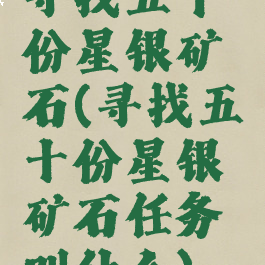 寻找五十
份星银矿
石(寻找五
十份星银
矿石任务
叫什么)